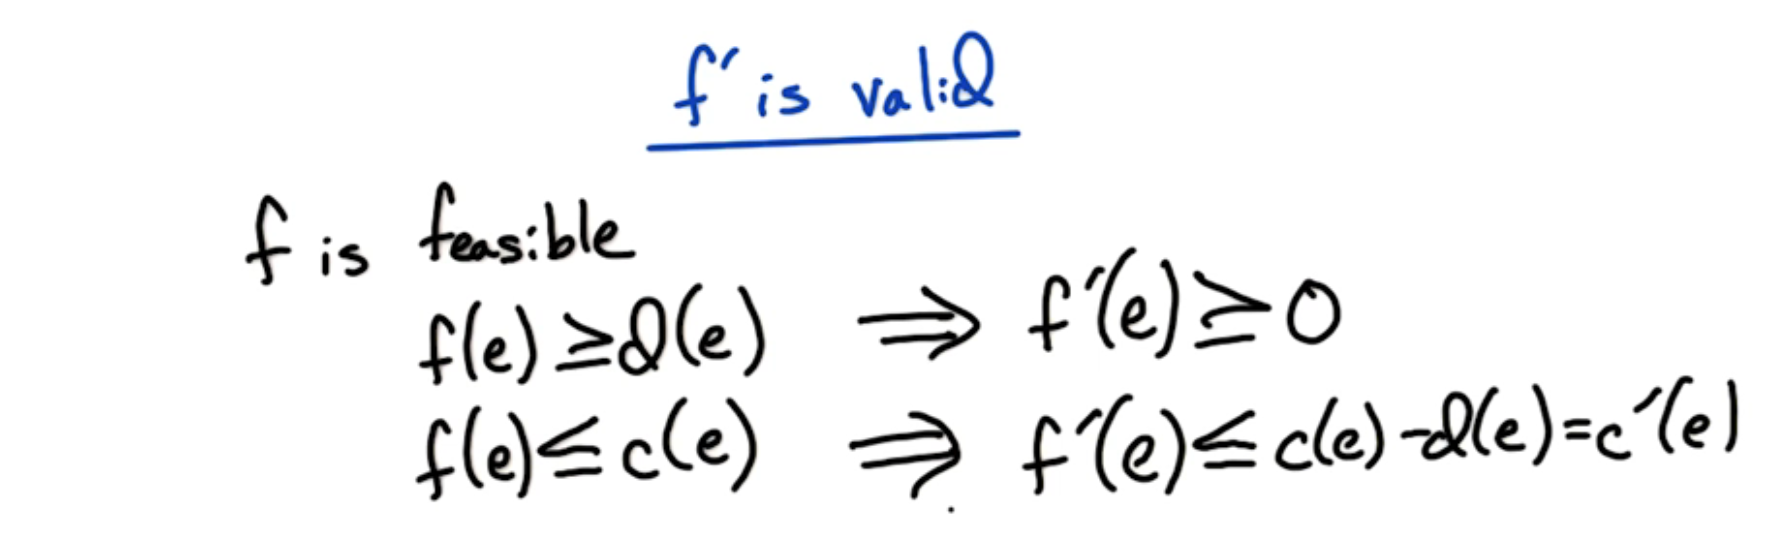 f' is valid
f is feasible
f(e) ≥ d(e) ⟹ f'(e) ≥ 0
f(e) ≤ c(e) ⟹ f'(e) ≤ c(e) - d(e) = c'(e)